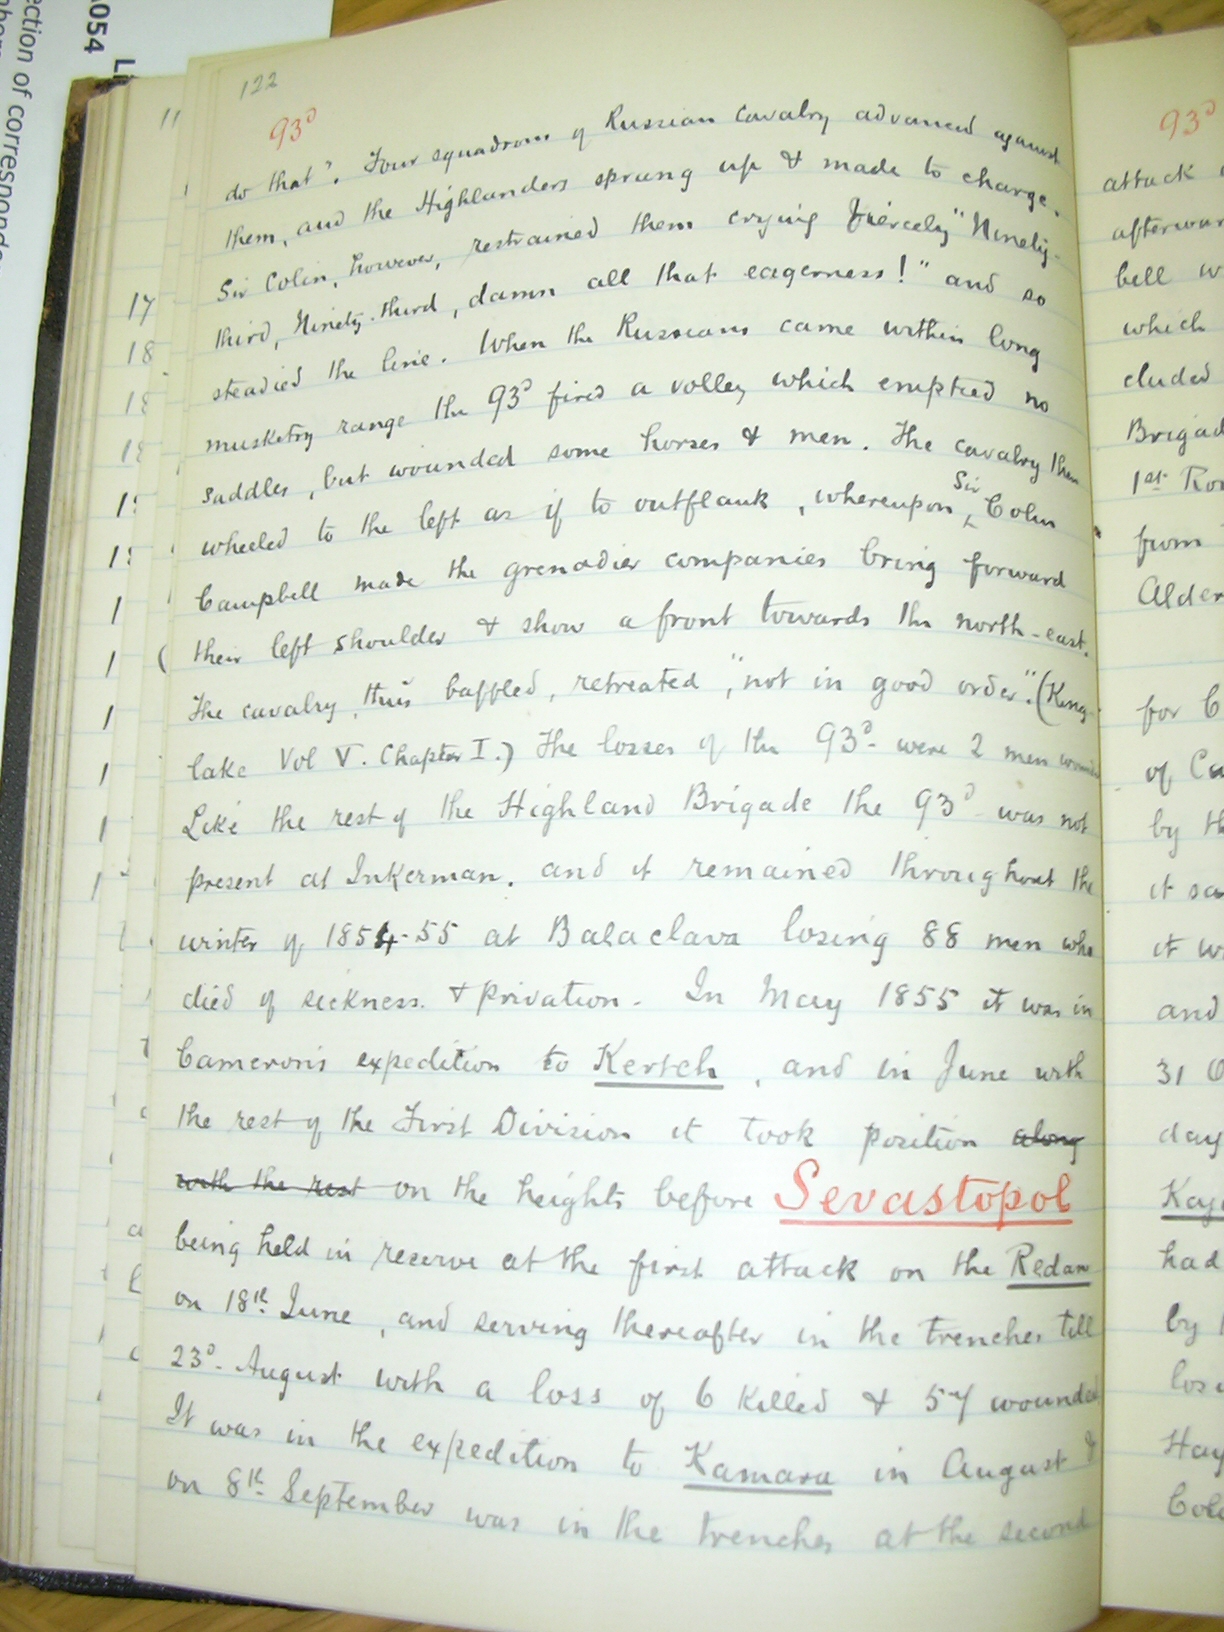 122
93d
do that". Four squadrons of Russian Cavalry advanced against
them, and the Highlanders sprung up & made to charge.
Sir Colin, however, restrained them crying fiercely "Ninety-
third, Ninety-third, damn all that eagerness!" and so
steadied the line. When the Russians came within long
musketry range the 93d fired a volley which emptied no
saddles, but wounded some horses & men. The cavalry then
wheeled to the left as if to outflank, whereupon Sir Colin
Campbell made the grenadier companies bring forward
their left shoulder & show a front towards the north-east.
The cavalry, thus baffled, retreated, "not in good order". (King-
lake Vol V. Chapter I.) The losses of the 93d were 2 men wounded
Like the rest of the Highland Brigade the 93d was not
present at Inkerman, and it remained throughout the
winter of 1854-55 at Balaclava losing 88 men who
died of sickness & privation. In May 1855 it was in
Cameron's expedition to Kertch, and in June with
the rest of the First Division it took position along
with the rest on the heights before Sevastopol
being held in reserve at the first attack on the Redan
on 18th June, and serving thereafter in the trenches till
23d August with a loss of 6 killed & 57 wounded
It was in the expedition to Kamara in August &
on 8th September was in the trenches at the second
93d
attack
bell
which
cluded
Brigad
1st
from
for
of
by
it
it
and
31
day
had
by
054
ection of correspond
11
17
18
18